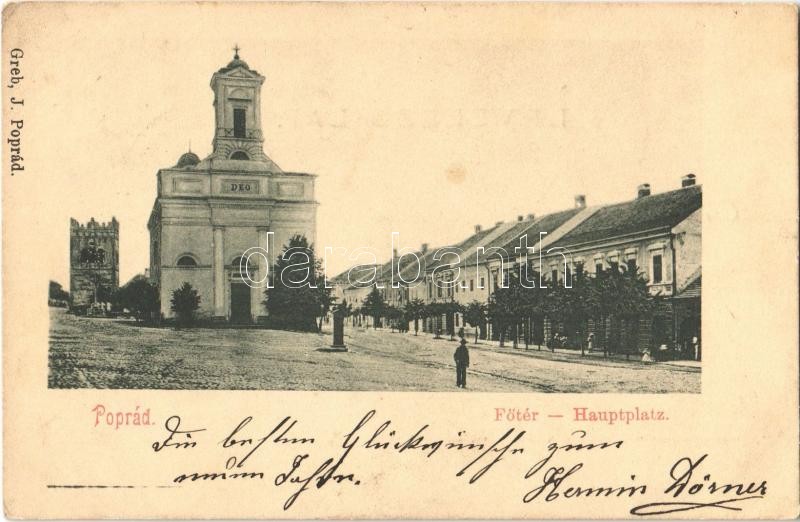 Greb, J. Poprád.
DEO
darabanth.com
Poprád.
Főtér — Hauptplatz.
Die besten Glückwünsche zum
neuen Jahre.
Hermin Dörner